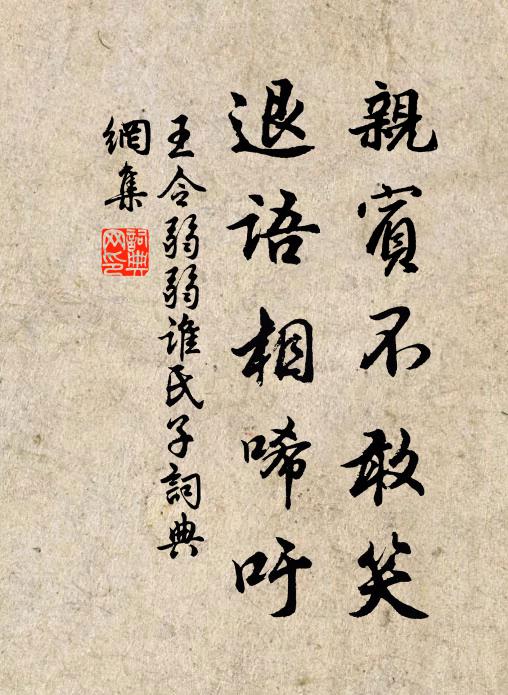 親賓不敢笑
退語相唏吁
王令弱弱誰氏子詞典
網集
詞典網印